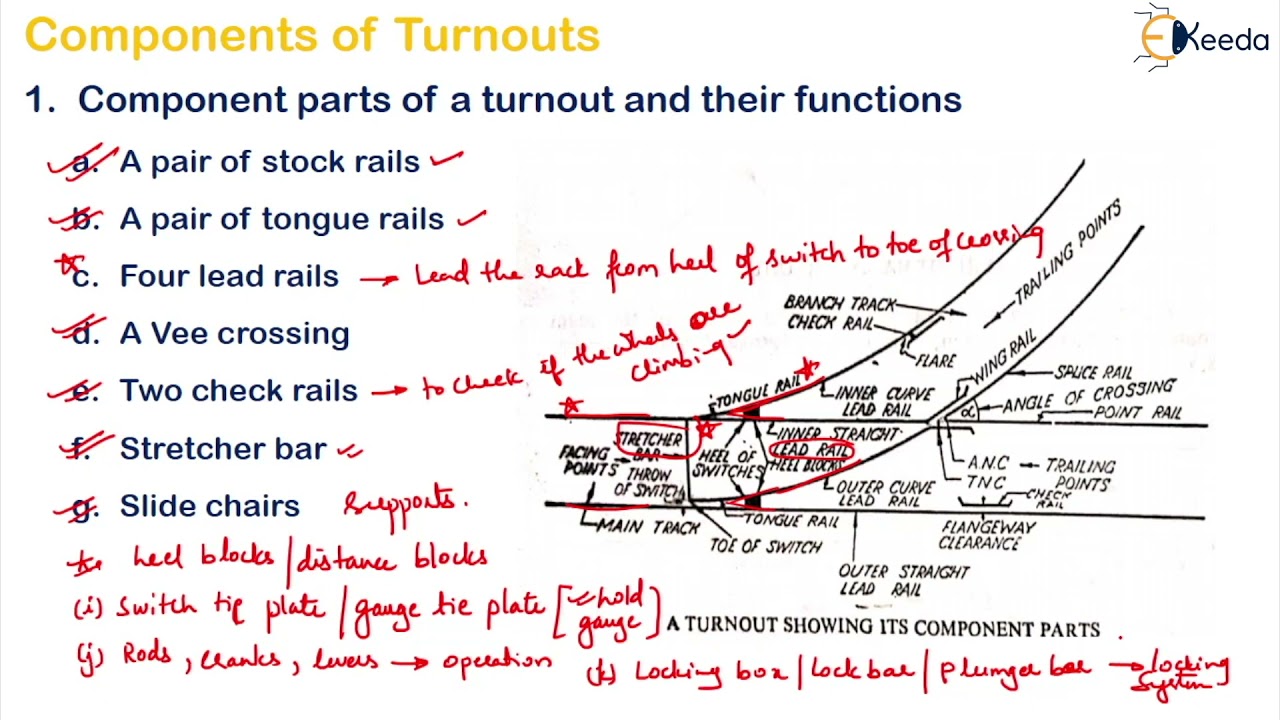 Components of Turnouts
EKeeda
1. Component parts of a turnout and their functions
a. A pair of stock rails
b. A pair of tongue rails
c. Four lead rails → Lead the rack from heel of switch to toe of crossing
d. A Vee crossing
e. Two check rails → to check if the wheels are
climbing
f. Stretcher bar
g. Slide chairs supports.
heel blocks / distance blocks
(i) Switch tie plate / gauge tie plate [hold
gauge]
(j) Rods, cranks, levers → operation
(k) Locking box / lock bar / plunger bar → locking
system
TRAILING POINTS
BRANCH TRACK
CHECK RAIL
FLARE
WING RAIL
SPLICE RAIL
TONGUE RAIL
INNER CURVE
LEAD RAIL
ANGLE OF CROSSING
α
POINT RAIL
STRETCHER
BAR
INNER STRAIGHT
LEAD RAIL
HEEL BLOCKS
FACING
POINTS
HEEL OF
SWITCHES
THROW
OF SWITCH
A.N.C
TRAILING
POINTS
TNC
OUTER CURVE
LEAD RAIL
CHECK
RAIL
MAIN TRACK
TONGUE RAIL
TOE OF SWITCH
FLANGEWAY
CLEARANCE
OUTER STRAIGHT
LEAD RAIL
A TURNOUT SHOWING ITS COMPONENT PARTS